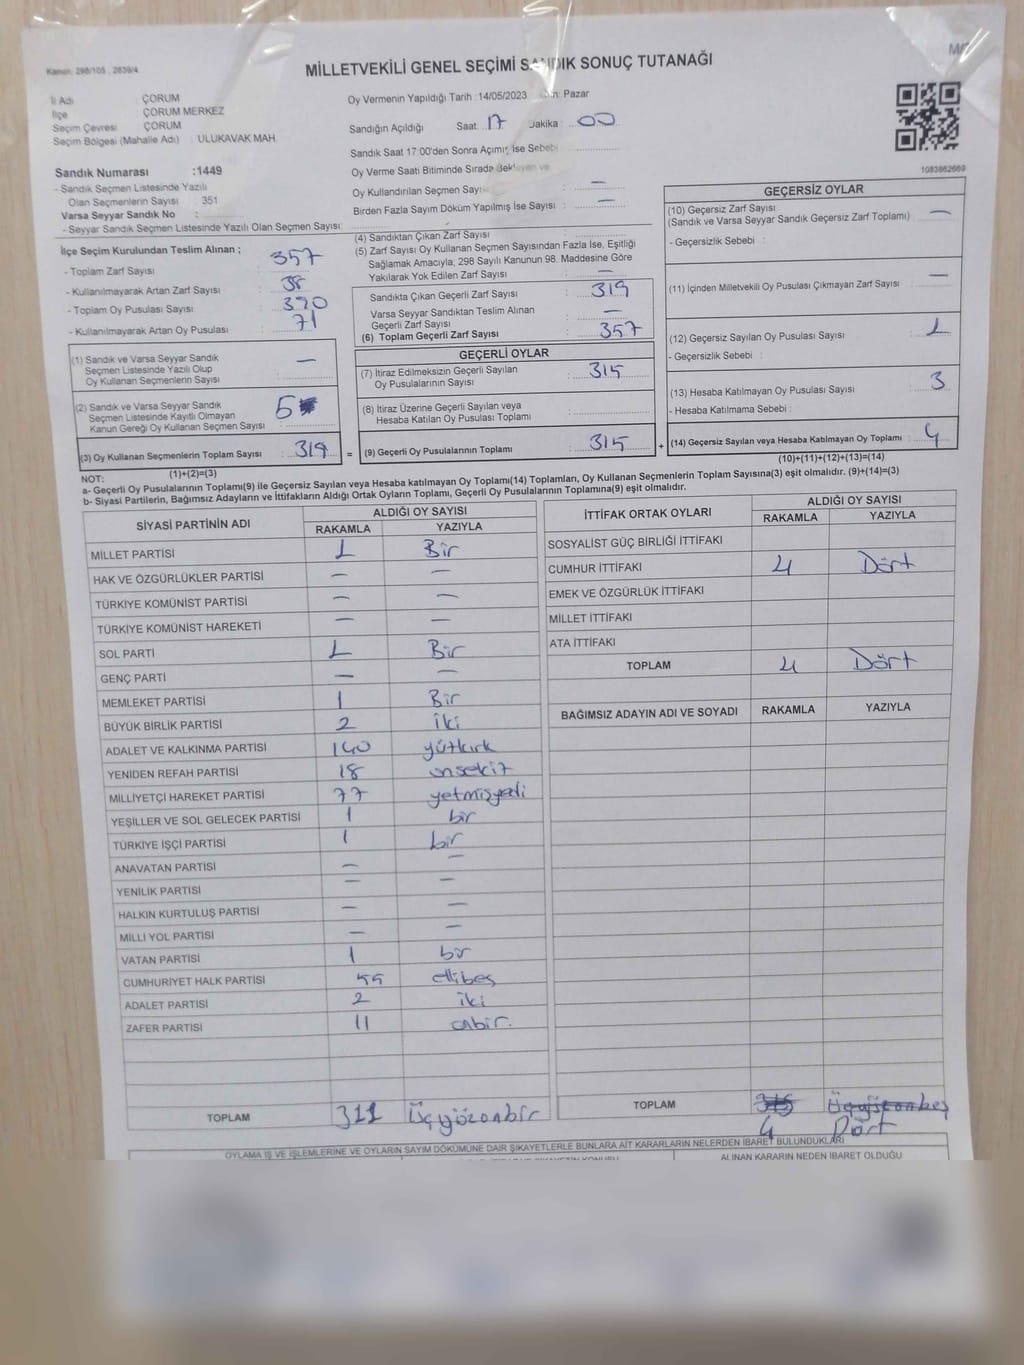 Kanun: 298/105 , 2839/4
MİLLETVEKİLİ GENEL SEÇİMİ SANDIK SONUÇ TUTANAĞI
İl Adı ÇORUM
İlçe ÇORUM MERKEZ
Seçim Çevresi ÇORUM
Seçim Bölgesi (Mahalle Adı) : ULUKAVAK MAH.
Sandık Numarası :1449
- Sandık Seçmen Listesinde Yazılı
Olan Seçmenlerin Sayısı 351
Varsa Seyyar Sandık No :
- Seyyar Sandık Seçmen Listesinde Yazılı Olan Seçmen Sayısı:
Oy Vermenin Yapıldığı Tarih :14/05/2023 Pazar
Sandığın Açıldığı Saat: 17 Dakika : 00
Sandık Saat 17:00'den Sonra Açımış İse Sebebi
Oy Verme Saati Bitiminde Sırada Bekleyen ve
Oy Kullandırılan Seçmen Sayısı : —
Birden Fazla Sayım Döküm Yapılmış İse Sayısı : —
1083862669
İlçe Seçim Kurulundan Teslim Alınan ;
- Toplam Zarf Sayısı : 357
- Kullanılmayarak Artan Zarf Sayısı : 38
- Toplam Oy Pusulası Sayısı : 390
- Kullanılmayarak Artan Oy Pusulası : 71
(1) Sandık ve Varsa Seyyar Sandık
Seçmen Listesinde Yazılı Olup
Oy Kullanan Seçmenlerin Sayısı : —
(2) Sandık ve Varsa Seyyar Sandık
Seçmen Listesinde Kayıtlı Olmayan
Kanun Gereği Oy Kullanan Seçmen Sayısı : 5
(3) Oy Kullanan Seçmenlerin Toplam Sayısı : 319
(1)+(2)=(3)
(4) Sandıktan Çıkan Zarf Sayısı :
(5) Zarf Sayısı Oy Kullanan Seçmen Sayısından Fazla İse, Eşitliği
Sağlamak Amacıyla, 298 Sayılı Kanunun 98. Maddesine Göre
Yakılarak Yok Edilen Zarf Sayısı : —
Sandıkta Çıkan Geçerli Zarf Sayısı : 319
Varsa Seyyar Sandıktan Teslim Alınan
Geçerli Zarf Sayısı : —
(6) Toplam Geçerli Zarf Sayısı : 357
GEÇERLİ OYLAR
(7) İtiraz Edilmeksizin Geçerli Sayılan
Oy Pusulalarının Sayısı : 315
(8) İtiraz Üzerine Geçerli Sayılan veya
Hesaba Katılan Oy Pusulası Toplamı :
= (9) Geçerli Oy Pusulalarının Toplamı : 315 +
GEÇERSİZ OYLAR
(10) Geçersiz Zarf Sayısı
(Sandık ve Varsa Seyyar Sandık Geçersiz Zarf Toplamı) : —
- Geçersizlik Sebebi :
(11) İçinden Milletvekili Oy Pusulası Çıkmayan Zarf Sayısı : —
(12) Geçersiz Sayılan Oy Pusulası Sayısı : 1
- Geçersizlik Sebebi :
(13) Hesaba Katılmayan Oy Pusulası Sayısı : 3
- Hesaba Katılmama Sebebi :
(14) Geçersiz Sayılan veya Hesaba Katılmayan Oy Toplamı : 4
(10)+(11)+(12)+(13)=(14)
NOT:
a- Geçerli Oy Pusulalarının Toplamı(9) ile Geçersiz Sayılan veya Hesaba katılmayan Oy Toplamı(14) Toplamları, Oy Kullanan Seçmenlerin Toplam Sayısına(3) eşit olmalıdır. (9)+(14)=(3)
b- Siyasi Partilerin, Bağımsız Adayların ve İttifakların Aldığı Ortak Oyların Toplamı, Geçerli Oy Pusulalarının Toplamına(9) eşit olmalıdır.
SİYASİ PARTİNİN ADI ALDIĞI OY SAYISI
RAKAMLA YAZIYLA
MİLLET PARTİSİ 1 Bir
HAK VE ÖZGÜRLÜKLER PARTİSİ — —
TÜRKİYE KOMÜNİST PARTİSİ — —
TÜRKİYE KOMÜNİST HAREKETİ — —
SOL PARTİ 1 Bir
GENÇ PARTİ — —
MEMLEKET PARTİSİ 1 Bir
BÜYÜK BİRLİK PARTİSİ 2 iki
ADALET VE KALKINMA PARTİSİ 140 yüzkırk
YENİDEN REFAH PARTİSİ 18 onsekiz
MİLLİYETÇİ HAREKET PARTİSİ 77 yetmişyedi
YEŞİLLER VE SOL GELECEK PARTİSİ 1 bir
TÜRKİYE İŞÇİ PARTİSİ 1 bir
ANAVATAN PARTİSİ — —
YENİLİK PARTİSİ — —
HALKIN KURTULUŞ PARTİSİ — —
MİLLİ YOL PARTİSİ — —
VATAN PARTİSİ 1 bir
CUMHURİYET HALK PARTİSİ 55 ellibeş
ADALET PARTİSİ 2 iki
ZAFER PARTİSİ 11 onbir.
TOPLAM 311 Üçyüzonbir
İTTİFAK ORTAK OYLARI ALDIĞI OY SAYISI
RAKAMLA YAZIYLA
SOSYALİST GÜÇ BİRLİĞİ İTTİFAKI
CUMHUR İTTİFAKI 4 Dört
EMEK VE ÖZGÜRLÜK İTTİFAKI
MİLLET İTTİFAKI
ATA İTTİFAKI
TOPLAM 4 Dört
BAĞIMSIZ ADAYIN ADI VE SOYADI RAKAMLA YAZIYLA
TOPLAM 315 Üçyüzonbeş
4 Dört
OYLAMA İŞ VE İŞLEMLERİNE VE OYLARIN SAYIM DÖKÜMÜNE DAİR ŞİKAYETLERLE BUNLARA AİT KARARLARIN NELERDEN İBARET BULUNDUKLARI
ALINAN KARARIN NEDEN İBARET OLDUĞU